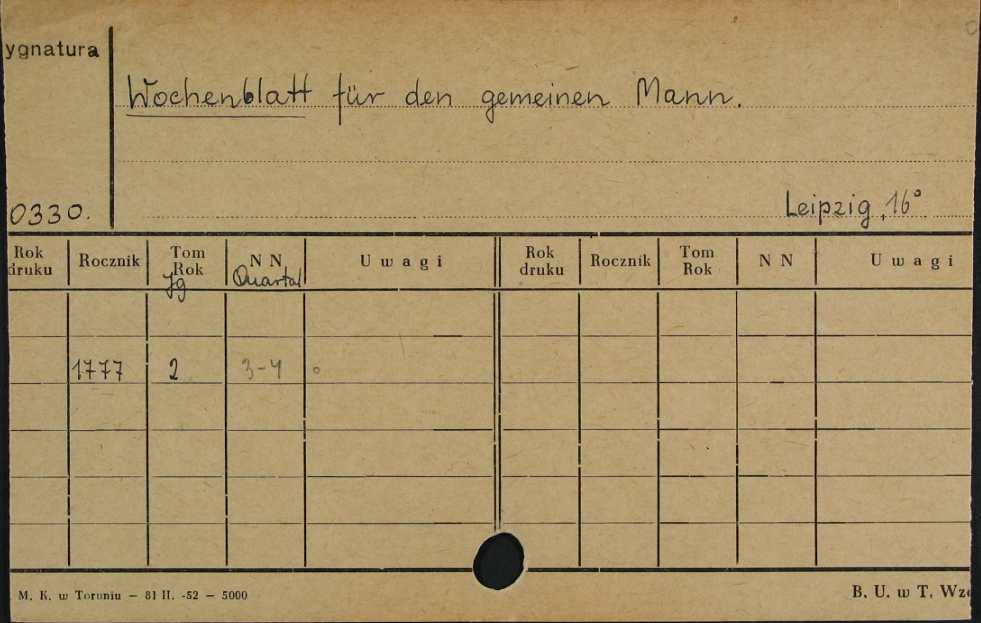 ygnatura
Wochenblatt für den gemeinen Mann.
0330.
Leipzig, 16°
Rok druku Rocznik Tom Rok Jg N N Quartal Uwagi Rok druku Rocznik Tom Rok N N Uwagi
1777 2 3-4
M. K. w Toruniu — 81 H. -52 — 5000
B. U. w T. Wzó